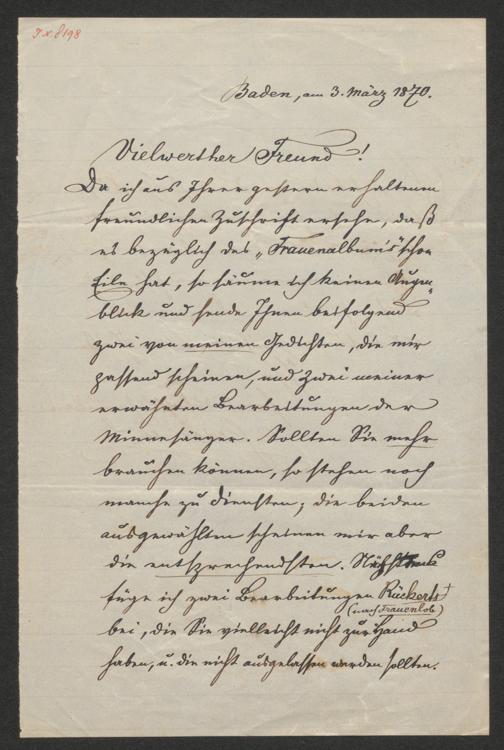 Baden, am 3. März 1870.
Vielwerther Freund!
Da ich aus Ihrer gestern erhaltenen
freundlichen Zuschrift ersehe, daß
es bezüglich des „Frauenalbums" schon
Eile hat, so säume ich keinen Augen-
blick und sende Ihnen beifolgend
zwei von meinen Gedichten, die mir
passend scheinen, und zwei meiner
erwähnten Bearbeitungen der
Minnesänger. Sollten Sie mehr
brauchen können, so stehen noch
manche zu Diensten; die beiden
ausgewählten scheinen mir aber
die entsprechendsten.
füge ich zwei Bearbeitungen Rückerts
(nach Frauenlob)
bei, die Sie vielleicht nicht zur Hand
haben, u. die nicht ausgelassen werden sollten.